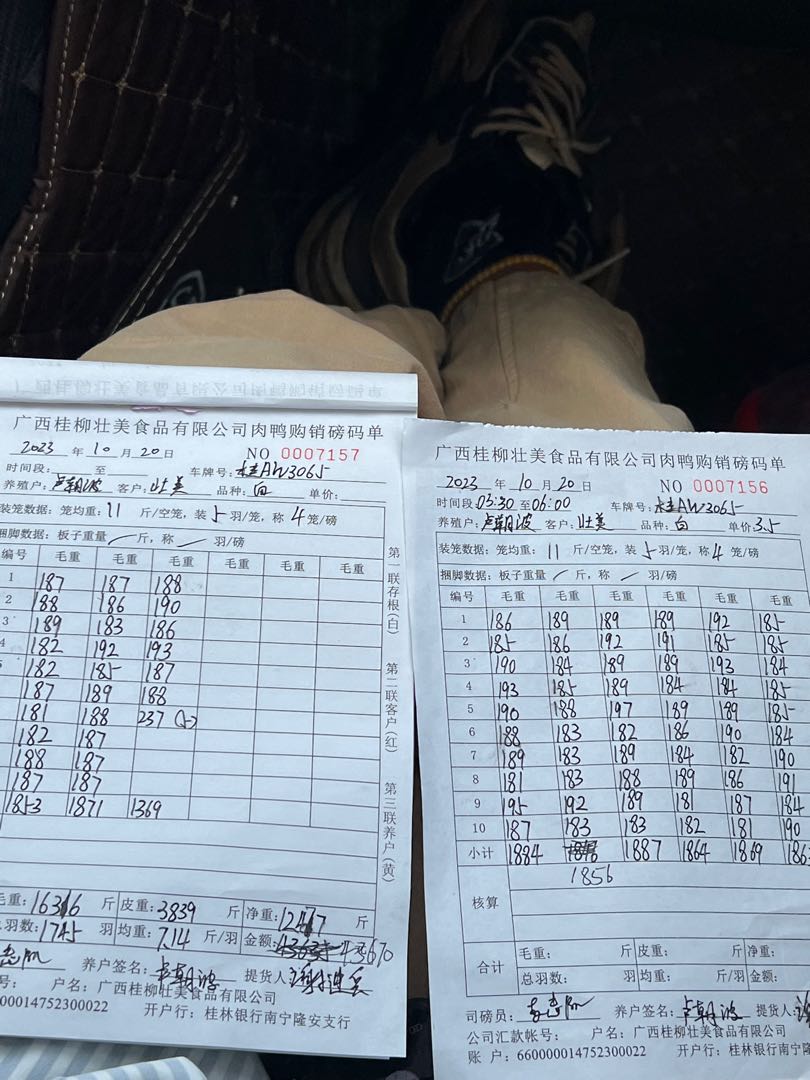 广西桂柳壮美食品有限公司肉鸭购销磅码单
2023 年 10 月 20 日 NO 0007157
时间段: 至 车牌号: 桂AW3065
养殖户: 卢朝波 客户: 壮美 品种: 白 单价:
装笼数据: 笼均重: 11 斤/空笼, 装 5 羽/笼, 称 4 笼/磅
捆脚数据: 板子重量 / 斤, 称 / 羽/磅
编号 毛重 毛重 毛重 毛重 毛重 毛重
1 187 187 188
2 188 186 190
3 189 183 186
4 182 192 193
5 182 185 187
187 189 188
181 188 237
182 187
188 187
187 187
1853 1871 1369
毛重: 16316 斤 皮重: 3839 斤 净重: 12477 斤
总羽数: 1745 羽 均重: 7.14 斤/羽 金额: 43670
养户签名: 卢朝波 提货人:
号: 户名: 广西桂柳壮美食品有限公司
00014752300022 开户行: 桂林银行南宁隆安支行
第一联存根(白)
第二联客户(红)
第三联养户(黄)
广西桂柳壮美食品有限公司肉鸭购销磅码单
2023 年 10 月 20 日 NO 0007156
时间段 03:30 至 06:00 车牌号: 桂AW3065
养殖户: 卢朝波 客户: 壮美 品种: 白 单价 3.5
装笼数据: 笼均重: 11 斤/空笼, 装 5 羽/笼, 称 4 笼/磅
捆脚数据: 板子重量 / 斤, 称 / 羽/磅
编号 毛重 毛重 毛重 毛重 毛重 毛重
1 186 189 189 189 192 185
2 185 186 192 191 185 185
3 190 184 189 189 193 184
4 193 185 189 184 184 185
5 190 188 197 189 189 185
6 188 183 182 186 190 184
7 189 183 189 184 182 190
8 181 183 188 189 186 191
9 195 192 189 181 187 184
10 187 183 183 182 181 190
小计 1884 1887 1864 1869 1863
1856
核算
合计 毛重: 斤 皮重: 斤 净重:
总羽数: 羽 均重: 斤/羽 金额:
司磅员: 养户签名: 卢朝波 提货人:
公司汇款帐号: 户名: 广西桂柳壮美食品有限公司
账 户: 660000014752300022 开户行: 桂林银行南宁隆